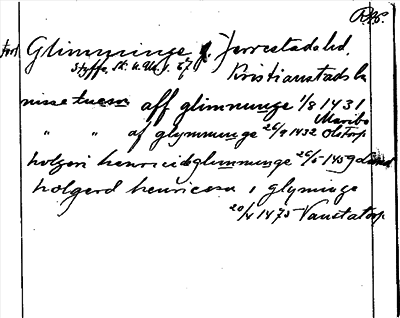 Glimminge Jerrestads hd.
Styffe, Sk. u. Un. s. 67
Kristianstads l.
nisse tuesen aff glimnunge 1/8 1431
Maribo
" " af glymmunge 26/9 1432 Olstorp
holgeri henrici glimnunge 26/5 1459 Lund
holgerd henricsen i glyminge
20/4 1475 Vanstatorp